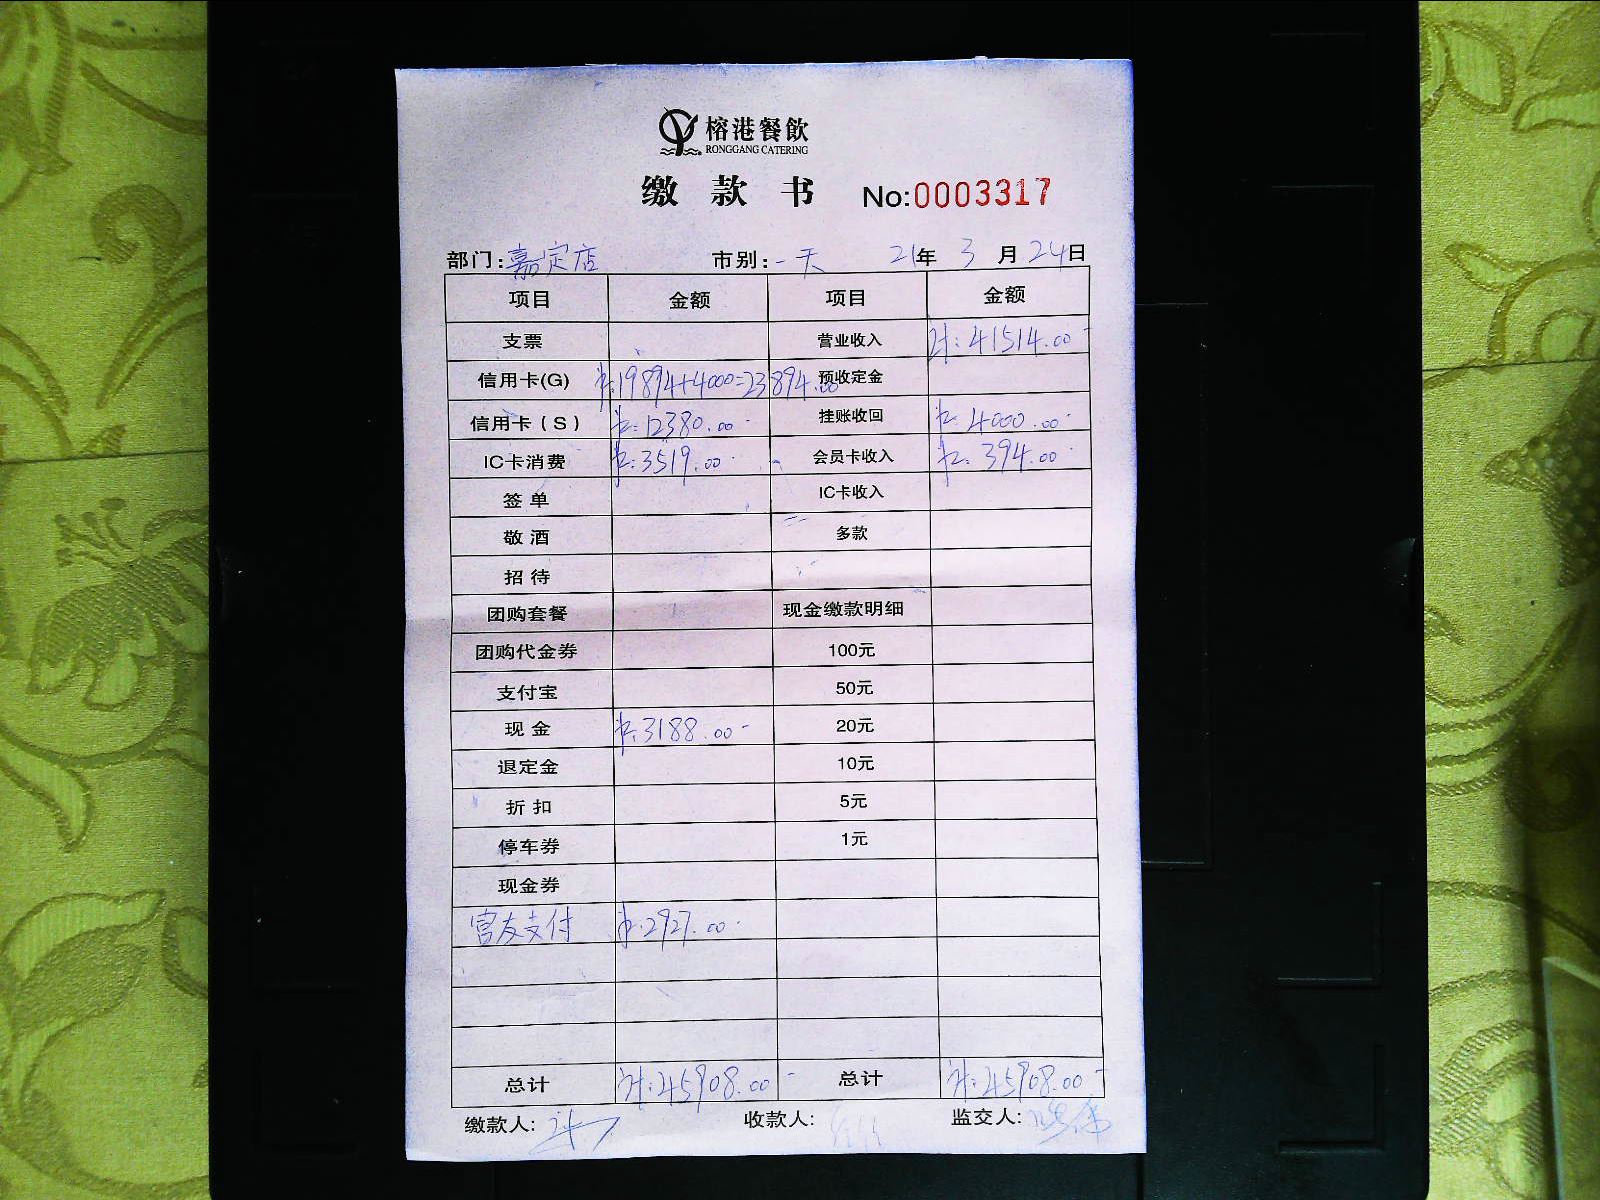 榕港餐飲
RONGGANG CATERING
缴款书 No:0003317
部门:嘉定店 市别:一天 21年3月24日
项目 金额 项目 金额
支票 营业收入 计:41514.00
信用卡(G) 19894+4000=23894.00 预收定金
信用卡(S) 12380.00 挂账收回 4000.00
IC卡消费 3519.00 会员卡收入 394.00
签单 IC卡收入
敬酒 多款
招待
团购套餐 现金缴款明细
团购代金券 100元
支付宝 50元
现金 3188.00 20元
退定金 10元
折扣 5元
停车券 1元
现金券
友支付 2927.00
总计 计:45908.00 总计 计:45908.00
缴款人: 收款人: 监交人: